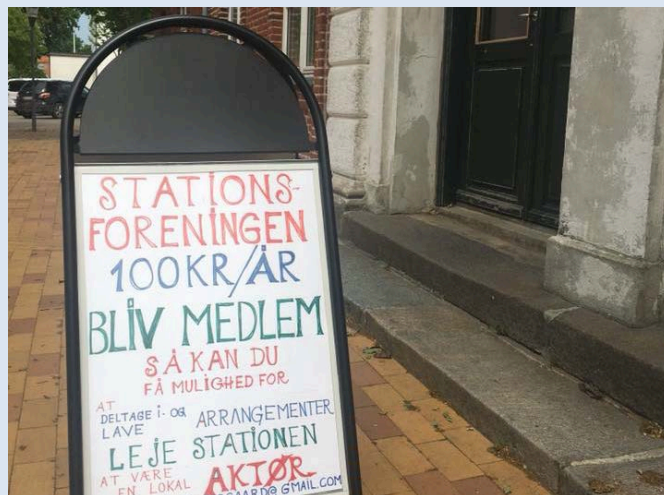 STATIONS-
FORENINGEN
100KR/ÅR
BLIV MEDLEM
SÅ KAN DU
FÅ MULIGHED FOR
AT
DELTAGE I- OG
LAVE
ARRANGEMENTER
LEJE STATIONEN
AT VÆRE
EN LOKAL
AKTØR
@GMAIL.COM